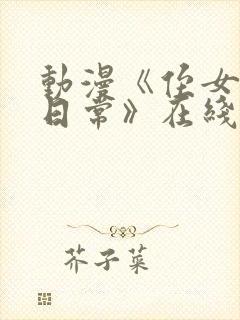 動漫《侄女
日常》在綫
芥子菜